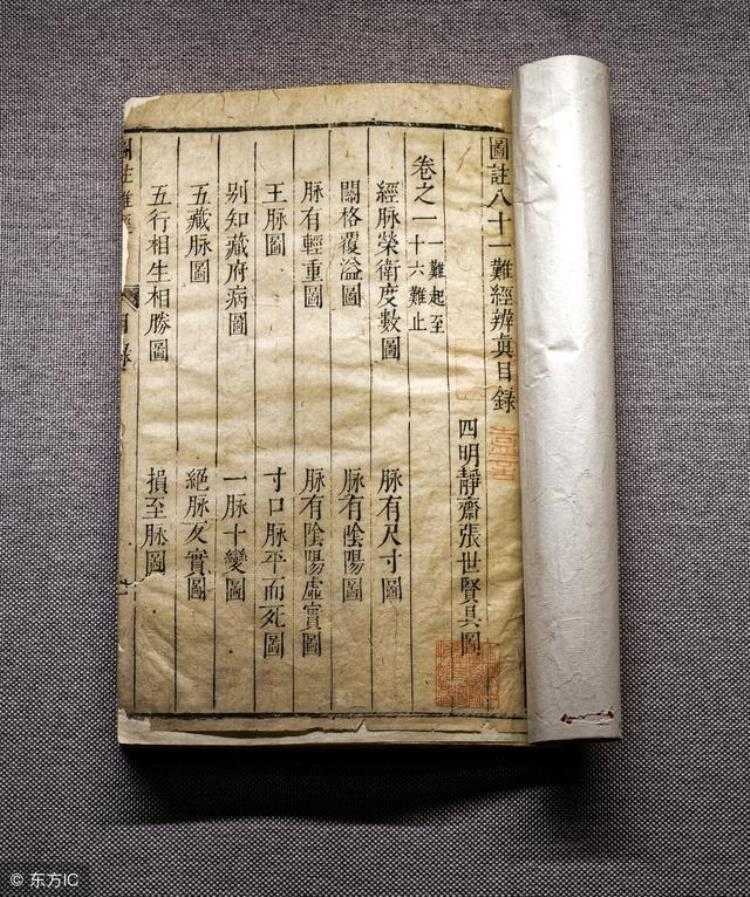 圖註八十一難經辨真目錄
四明靜齋張世賢具圖
卷之一 一難起至十六難止
經脉榮衛度數圖 脉有尺寸圖
關格覆溢圖 脉有陰陽圖
脉有輕重圖 脉有陰陽虛實圖
王脉圖 寸口脉平而死圖
别知藏府病圖 一脉十變圖
五藏脉圖 絕脉反實圖
五行相生相勝圖 損至脉圖
圖註難經 目錄
© 东方IC